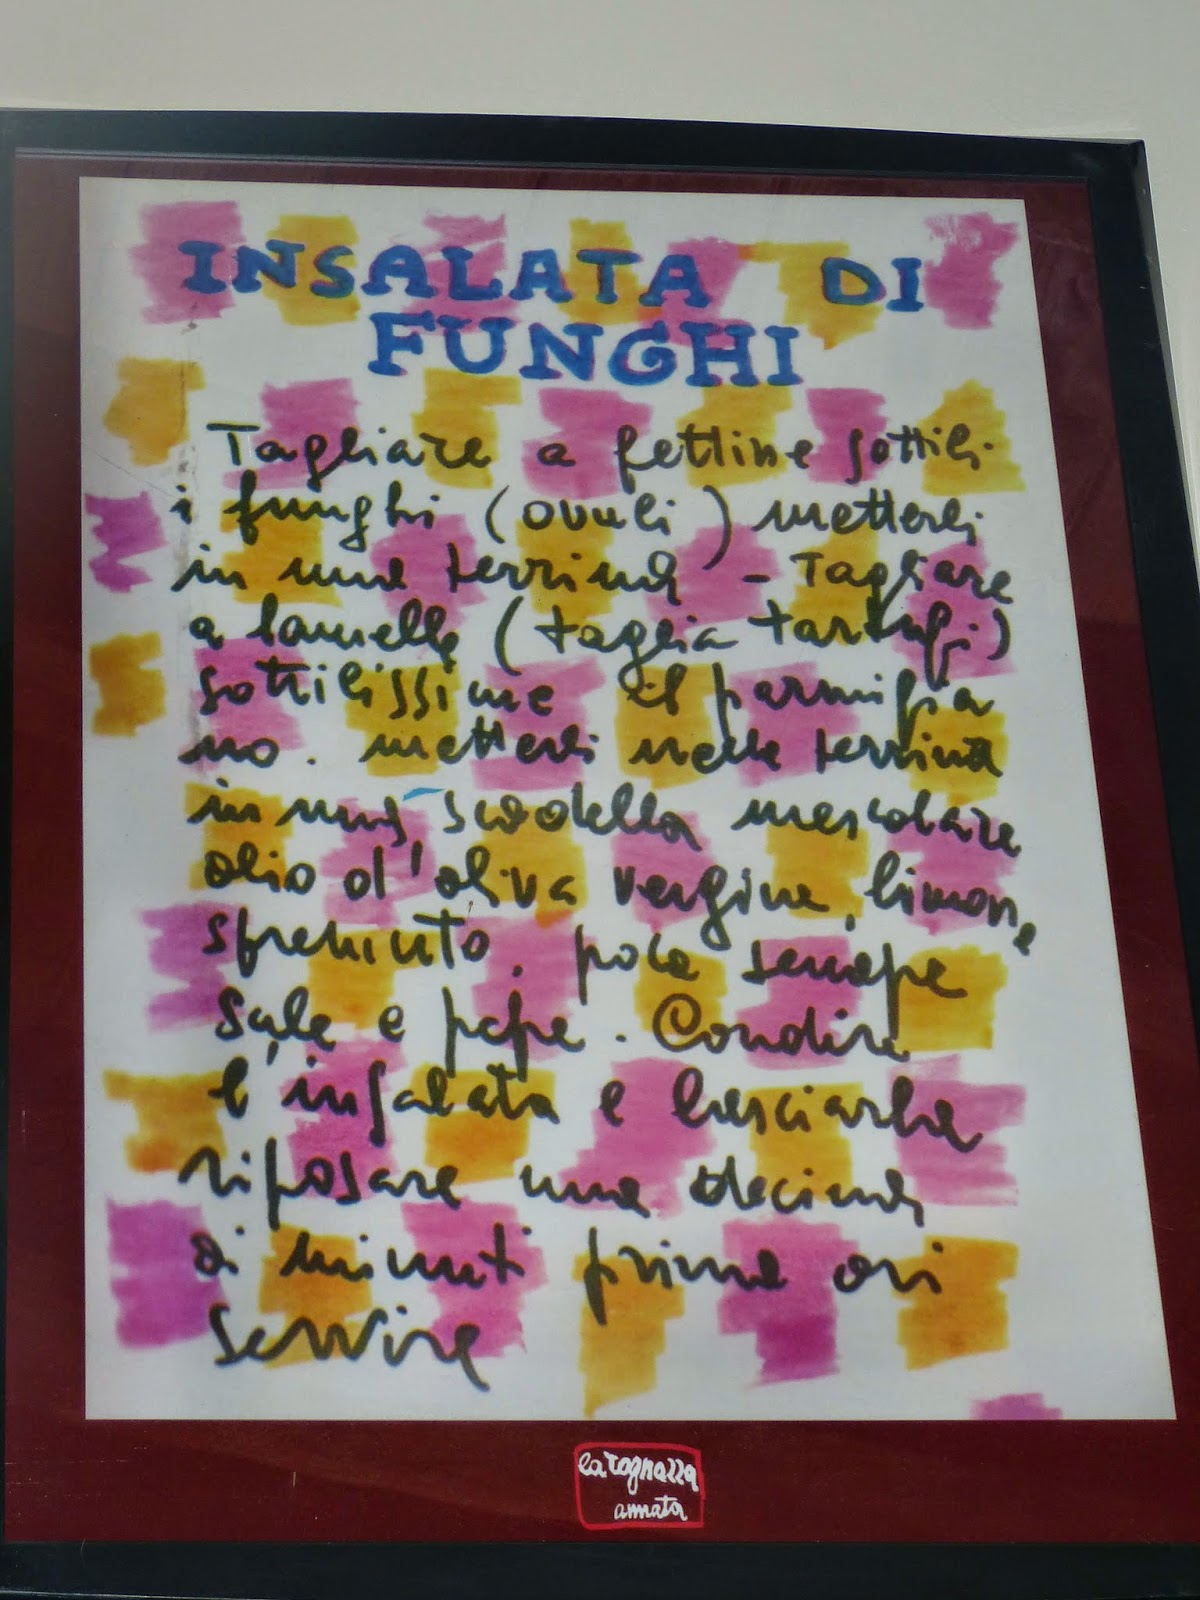 INSALATA DI
FUNGHI
Tagliare a fettine sottili
i funghi (ovuli) metterli
in una terrina - Tagliare
a lamelle (taglia tartufi)
sottilissime il parmigia
no. metterli nella terrina
in una scodella mescolare
olio d'oliva vergine, limone
spremuto, poca senape
sale e pepe. Condire
l'insalata e lasciarla
riposare una decina
di minuti prima di
servire
la Tognazza
amata